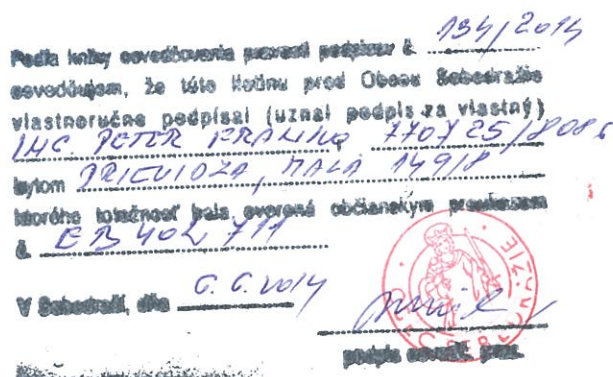 Podľa knihy osvedčovania pravosti podpisov č. 134/2014
osvedčujem, že túto listinu pred Obcou Sebedražie
vlastnoručne podpísal (uznal podpis za vlastný)
ING. PETER 770725/8085
bytom PRIEVIDZA, MALÁ 149/8
ktorého totožnosť bola overená občianskym preukazom
č. EB 402 711
V Sebedraží, dňa 6.6.2014
podpis osvedč. prac.